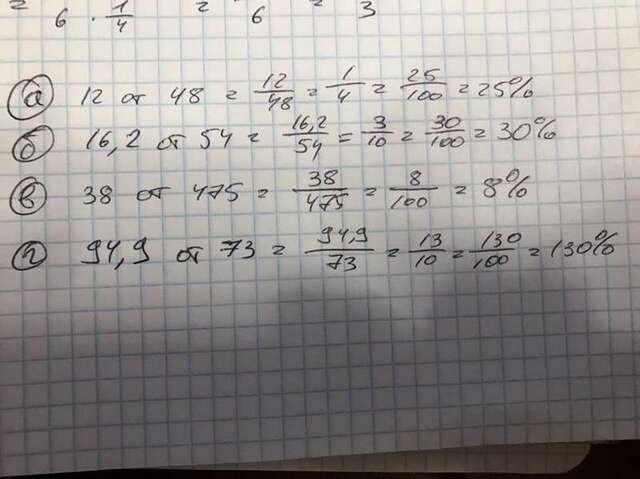 = 6 · 1/4 = 6 = 3
а) 12 от 48 = 12/48 = 1/4 = 25/100 = 25%
б) 16,2 от 54 = 16,2/54 = 3/10 = 30/100 = 30%
в) 38 от 475 = 38/475 = 8/100 = 8%
г) 94,9 от 73 = 94,9/73 = 13/10 = 130/100 = 130%